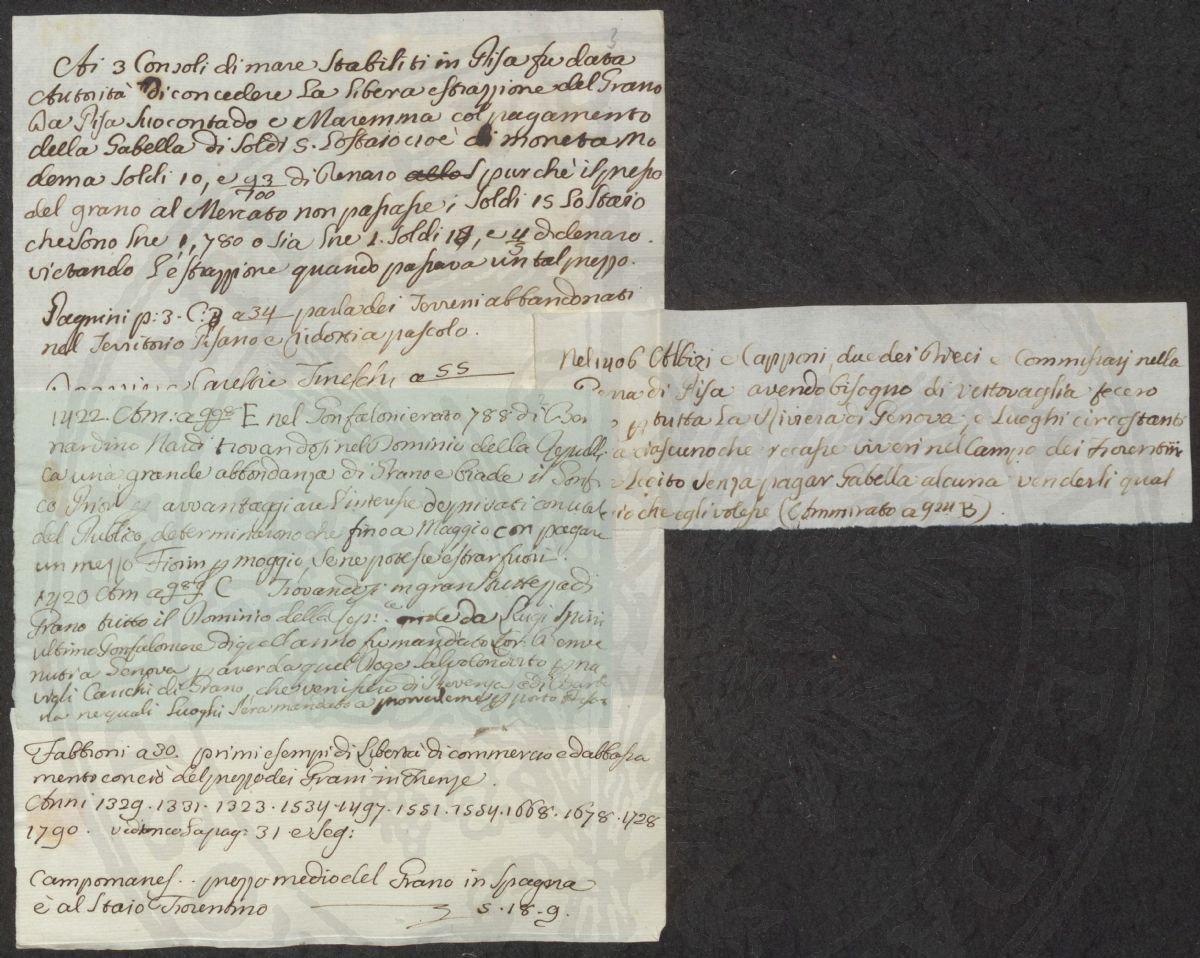 3
Ai 3 Consoli di mare stabiliti in Pisa fu data
Autorità di concedere La Libera estrazzione del Grano
Da Pisa suo contado e Maremma col pagamento
della Gabella di soldi 5. Lo staio cioè di moneta Mo
derna soldi 10, e 93/100 di Denaro allos purchè il prezzo
del grano al Mercato non passasse i soldi 15 Lo staio
che sono Lire 1,780 o sia Lire 1. soldi 1 , e 4/5 di denaro.
vietando L'estrazzione quando passava un tal prezzo.
Pagnini p: 3. C: a 34 parla dei Terreni abbandonati
nel Territorio Pisano e ridotti a pascolo.
Fineschi a 55
Nel 1406 Albizi e Capponi, due dei Dieci e Commissarj nella
di Pisa avendo bisogno di vettovaglia fecero
tutta La Riviera di Genova, e Luoghi circostanti
a ciascuno che recasse viveri nel Campo dei Fiorentini
Lecito senza pagar Gabella alcuna venderli qual
che egli volesse (Ammirato a 924 B)
1422. Am: a 998 E nel Gonfalonierato 788 di Ber
nardino Nardi trovandosi nel Dominio della Repubbli
ca una grande abbondanza di Grano e biade il Gonf
co Priori avvantaggiare L'interesse de privati con
del Publico, determinarono che fino a Maggio con pagare
un mezzo Fiorin moggio, se ne potesse estrar fuori.
1420 Am a 989 C Trovandosi in gran strettezza di
Grano tutto il Dominio della Rep:ca onde da Luigi
ultimo Gonfaloniere di quell'anno fu mandato Lor.
a Genova p aver da quel Doge salvo Condotto p na
vigli Carichi di Grano, che venissero di Provenza e di
na ne quali Luoghi s'era mandato a provederne p porto Pisan
Fabbroni a 30 primi esempi di Libertà di commercio e d'abbassa
mento con ciò del prezzo dei Grani in Firenze.
Anni 1329. 1331. 1323. 1534. 1497. 1551. 1554. 1668. 1678. 1728
1790. La pag: 31 e seg:
Campomanes.. prezzo medio del Grano in Spagna
è al Staio Fiorentino 5. 18. 9.